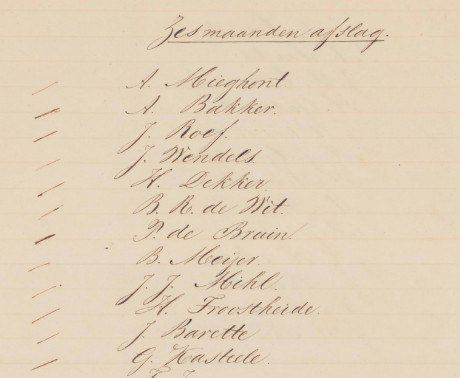 Zesmaanden afslag.
A. Mieghont.
A. Bakker.
J. Roef.
J. Wendels.
H. Dekker.
B. R. de Wit.
P. de Bruin.
B. Meijer.
J. J. Mihl.
H. Froostheide.
J. Barette
G. Kasteele.